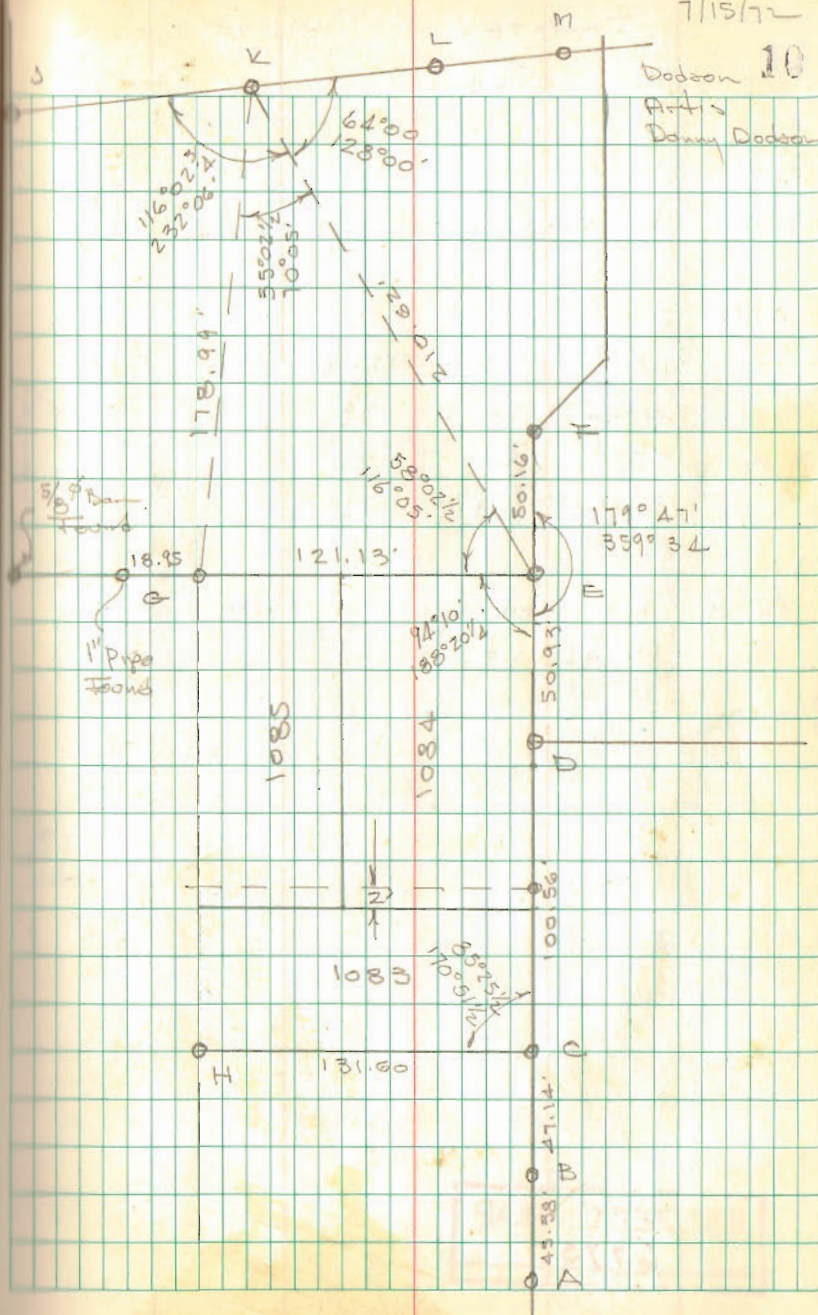 7/15/72
10
Dodson
Artis
Danny Dodson
J
K
L
M
64°00
128°00'
116°02.3
232°06.4
35°02½
70°05'
178.99'
210.62'
58°02½
116°05'
50.16'
F
179°47'
359°34
5/8"ø Bar
Found
18.95
121.13'
E
G
1" Pipe
Found
94°10'
188°20½'
50.93'
1085
1084
D
2'
100.56'
1083
85°25½
170°51½
H
131.60
C
47.14'
B
45.58'
A